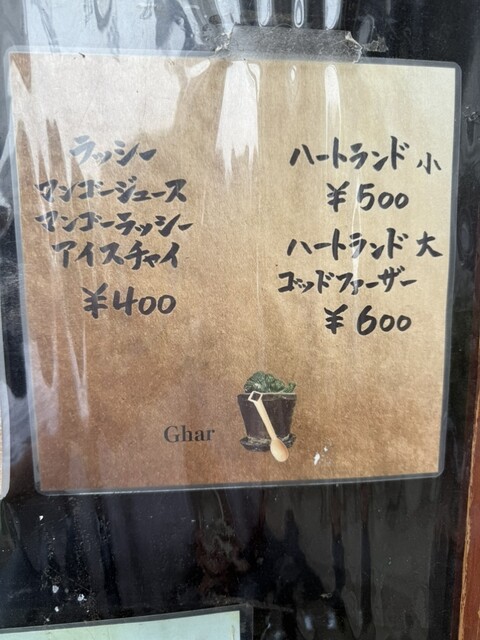 ラッシー
マンゴージュース
マンゴーラッシー
アイスチャイ
¥400
ハートランド 小
¥500
ハートランド 大
ゴッドファーザー
¥600
Ghar